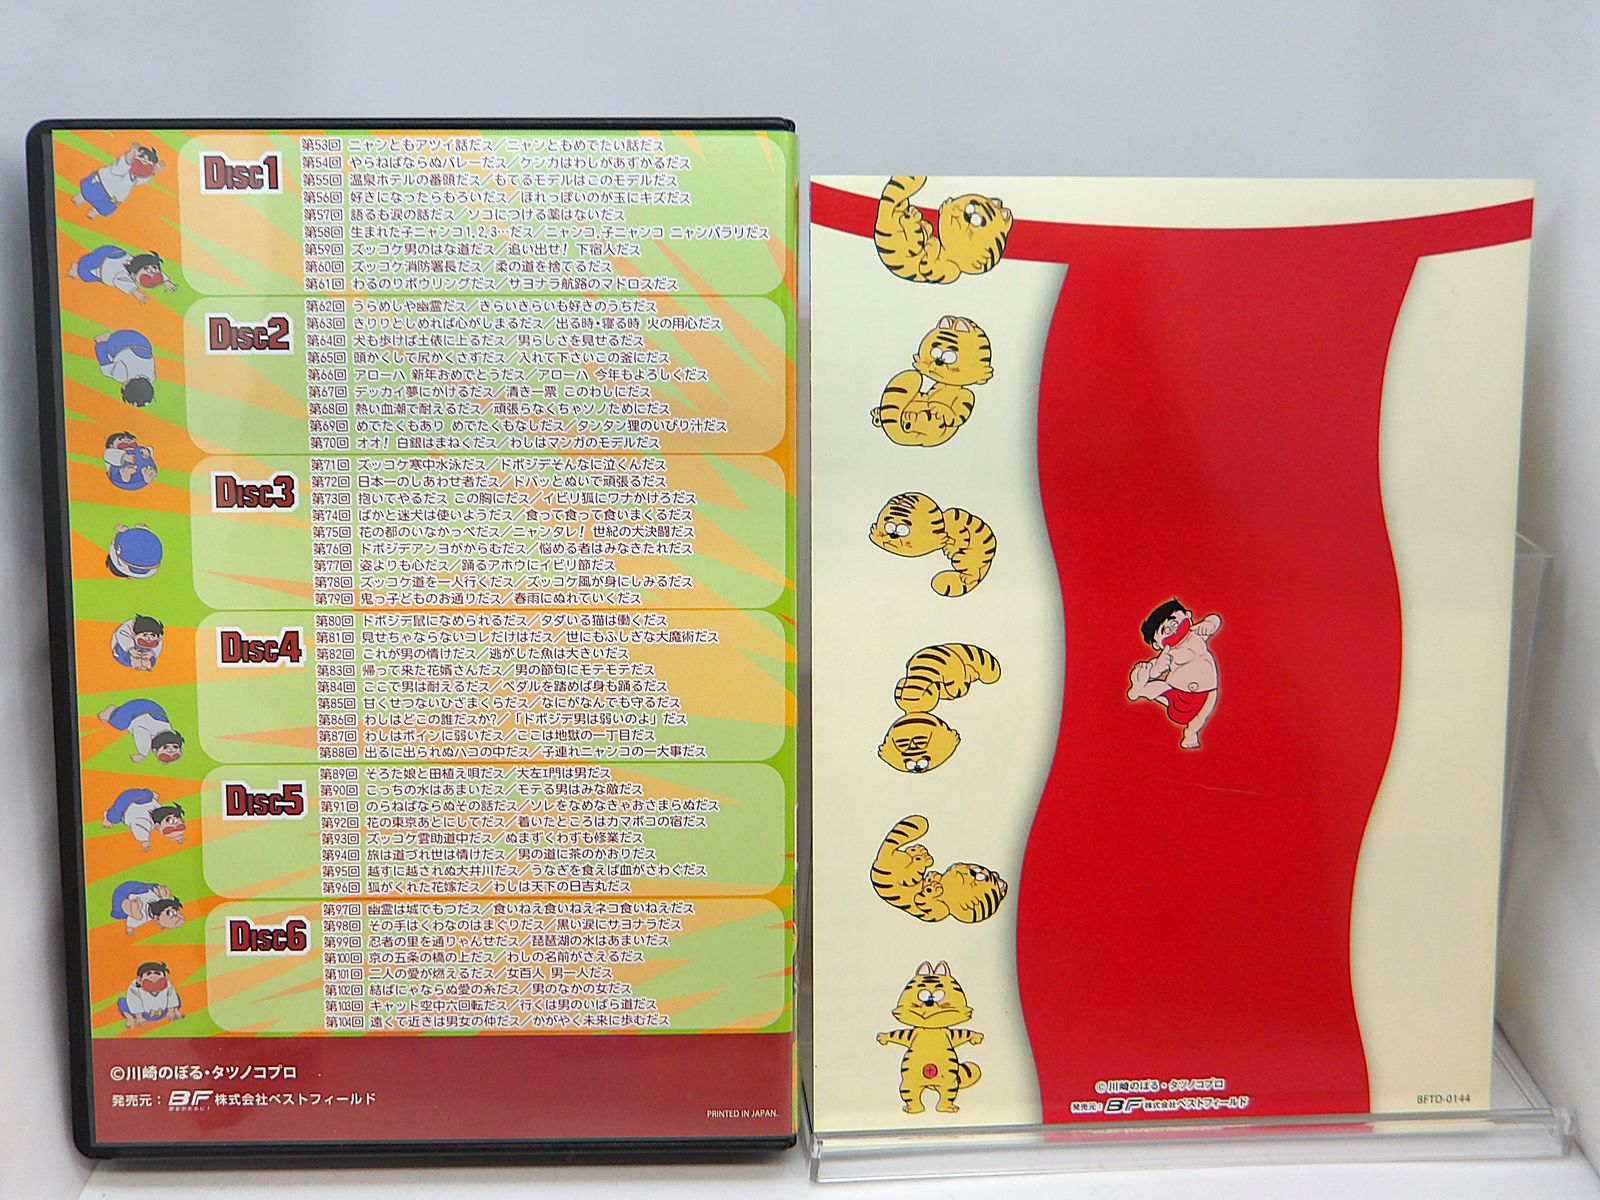 Disc1
第53回 ニャンともアツイ話だス／ニャンともめでたい話だス
第54回 やらねばならぬバレーだス／ケンカはわしがあずかるだス
第55回 温泉ホテルの番頭だス／もてるモデルはこのモデルだス
第56回 好きになったらもろいだス／ほれっぽいのが玉にキズだス
第57回 語るも涙の話だス／ソコにつける薬はないだス
第58回 生まれた子ニャンコ1,2,3…だス／ニャンコ、子ニャンコ ニャンバラリだス
第59回 ズッコケ男のはな道だス／追い出せ！ 下宿人だス
第60回 ズッコケ消防署長だス／柔の道を捨てるだス
第61回 わるのりボウリングだス／サヨナラ航路のマドロスだス
Disc2
第62回 うらめしや幽霊だス／きらいきらいも好きのうちだス
第63回 きりりとしめれば心がしまるだス／出る時・寝る時 火の用心だス
第64回 犬も歩けば土俵に上るだス／男らしさを見せるだス
第65回 頭かくして尻かくさずだス／入れて下さいこの釜にだス
第66回 アローハ 新年おめでとうだス／アローハ 今年もよろしくだス
第67回 デッカイ夢にかけるだス／清き一票 このわしにだス
第68回 熱い血潮で耐えるだス／頑張らなくちゃソノためにだス
第69回 めでたくもあり めでたくもなしだス／タンタン狸のいびり汁だス
第70回 オオ！ 白銀はまねくだス／わしはマンガのモデルだス
Disc3
第71回 ズッコケ寒中水泳だス／ドボジデそんなに泣くんだス
第72回 日本一のしあわせ者だス／ドバッとぬいで頑張るだス
第73回 抱いてやるだス この胸にだス／イビリ狐にワナかけろだス
第74回 ばかと迷犬は使いようだス／食って食って食いまくるだス
第75回 花の都のいなかっぺだス／ニャンタレ！ 世紀の大決闘だス
第76回 ドボジデアンヨがからむだス／悩める者はみなきたれだス
第77回 姿よりも心だス／踊るアホウにイビリ節だス
第78回 ズッコケ道を一人行くだス／ズッコケ風が身にしみるだス
第79回 鬼っ子どものお通りだス／春雨にぬれていくだス
Disc4
第80回 ドボジデ鼠になめられるだス／タダいる猫は働くだス
第81回 見せちゃならないコレだけはだス／世にもふしぎな大魔術だス
第82回 これが男の情けだス／逃がした魚は大きいだス
第83回 帰って来た花婿さんだス／男の節句にモテモテだス
第84回 ここで男は耐えるだス／ペダルを踏めば身も踊るだス
第85回 甘くせつないひざまくらだス／なにがなんでも守るだス
第86回 わしはどこの誰だスか?／「ドボジデ男は弱いのよ」だス
第87回 わしはボインに弱いだス／ここは地獄の一丁目だス
第88回 出るに出られぬハコの中だス／子連れニャンコの一大事だス
Disc5
第89回 そろた娘と田植え唄だス／大左ｴ門は男だス
第90回 こっちの水はあまいだス／モテる男はみな敵だス
第91回 のらねばならぬその話だス／ソレをなめなきゃおさまらぬだス
第92回 花の東京あとにしてだス／着いたところはカマボコの宿だス
第93回 ズッコケ雲助道中だス／ぬまずくわずも修業だス
第94回 旅は道づれ世は情けだス／男の道に茶のかおりだス
第95回 越すに越されぬ大井川だス／うなぎを食えば血がさわぐだス
第96回 狐がくれた花嫁だス／わしは天下の日吉丸だス
Disc6
第97回 幽霊は城でもつだス／食いねえ食いねえネコ食いねえだス
第98回 その手はくわなのはまぐりだス／黒い涙にサヨナラだス
第99回 忍者の里を通りゃんせだス／琵琶湖の水はあまいだス
第100回 京の五条の橋の上だス／わしの名前がさえるだス
第101回 二人の愛が燃えるだス／女百人 男一人だス
第102回 結ばにゃならぬ愛の糸だス／男のなかの女だス
第103回 キャット空中六回転だス／行くは男のいばら道だス
第104回 遠くて近きは男女の仲だス／かがやく未来に歩むだス
©川崎のぼる・タツノコプロ
発売元：BF 株式会社ベストフィールド
PRINTED IN JAPAN.
©川崎のぼる・タツノコプロ
発売元：BF 株式会社ベストフィールド
BFTD-0144